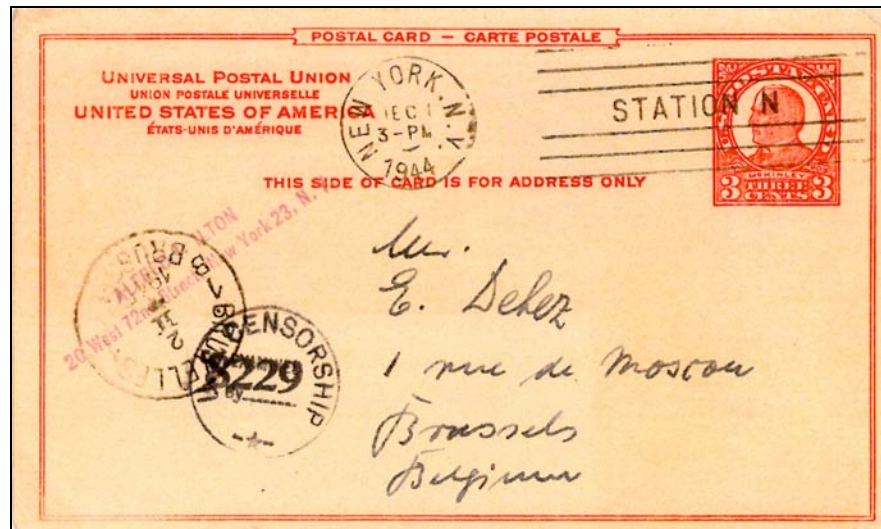 POSTAL CARD — CARTE POSTALE
UNIVERSAL POSTAL UNION
UNION POSTALE UNIVERSELLE
UNITED STATES OF AMERICA
ÉTATS-UNIS D'AMÉRIQUE
NEW YORK, N.Y.
DEC 1
3-PM
1944
STATION N
McKINLEY
3 THREE 3
CENTS
THIS SIDE OF CARD IS FOR ADDRESS ONLY
20 West 72nd Street, New York 23, N.
CENSORSHIP
8229
By
Mr.
E. Dehez
1 rue de Moscou
Brussels
Belgium